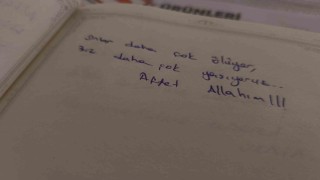 ÜRÜNLERİ
onlar daha çok ölüyor,
biz daha çok yazıyoruz..
Affet Allahım!!!